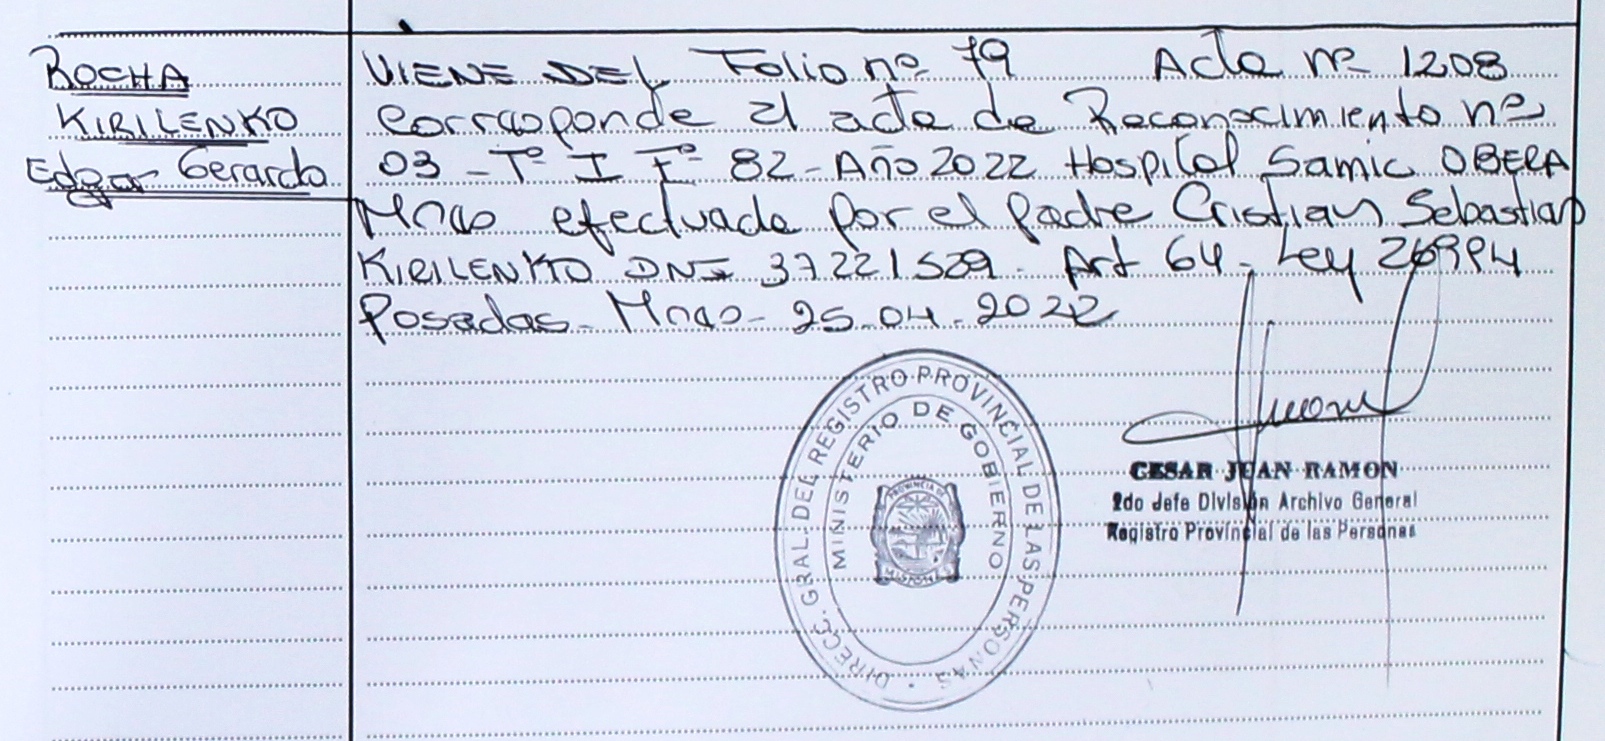 ROCHA
KIRILENKO
Edgar Gerardo
VIENE DEL Folio nº 79 Acta nº 1208
Corresponde al acta de Reconocimiento nº
03 - Tº I Fº 82 - Año 2022 Hospital Samic OBERA
Mnes efectuada por el padre Cristian Sebastian
KIRILENKO DNI 37221529. Art 64 - Ley 26994
Posadas - Mnes - 25-04-2022
DIRECC. GRAL. DEL REGISTRO PROVINCIAL DE LAS PERSONAS
MINISTERIO DE GOBIERNO
PROVINCIA DE
MISIONES
CESAR JUAN RAMON
2do Jefe División Archivo General
Registro Provincial de las Personas